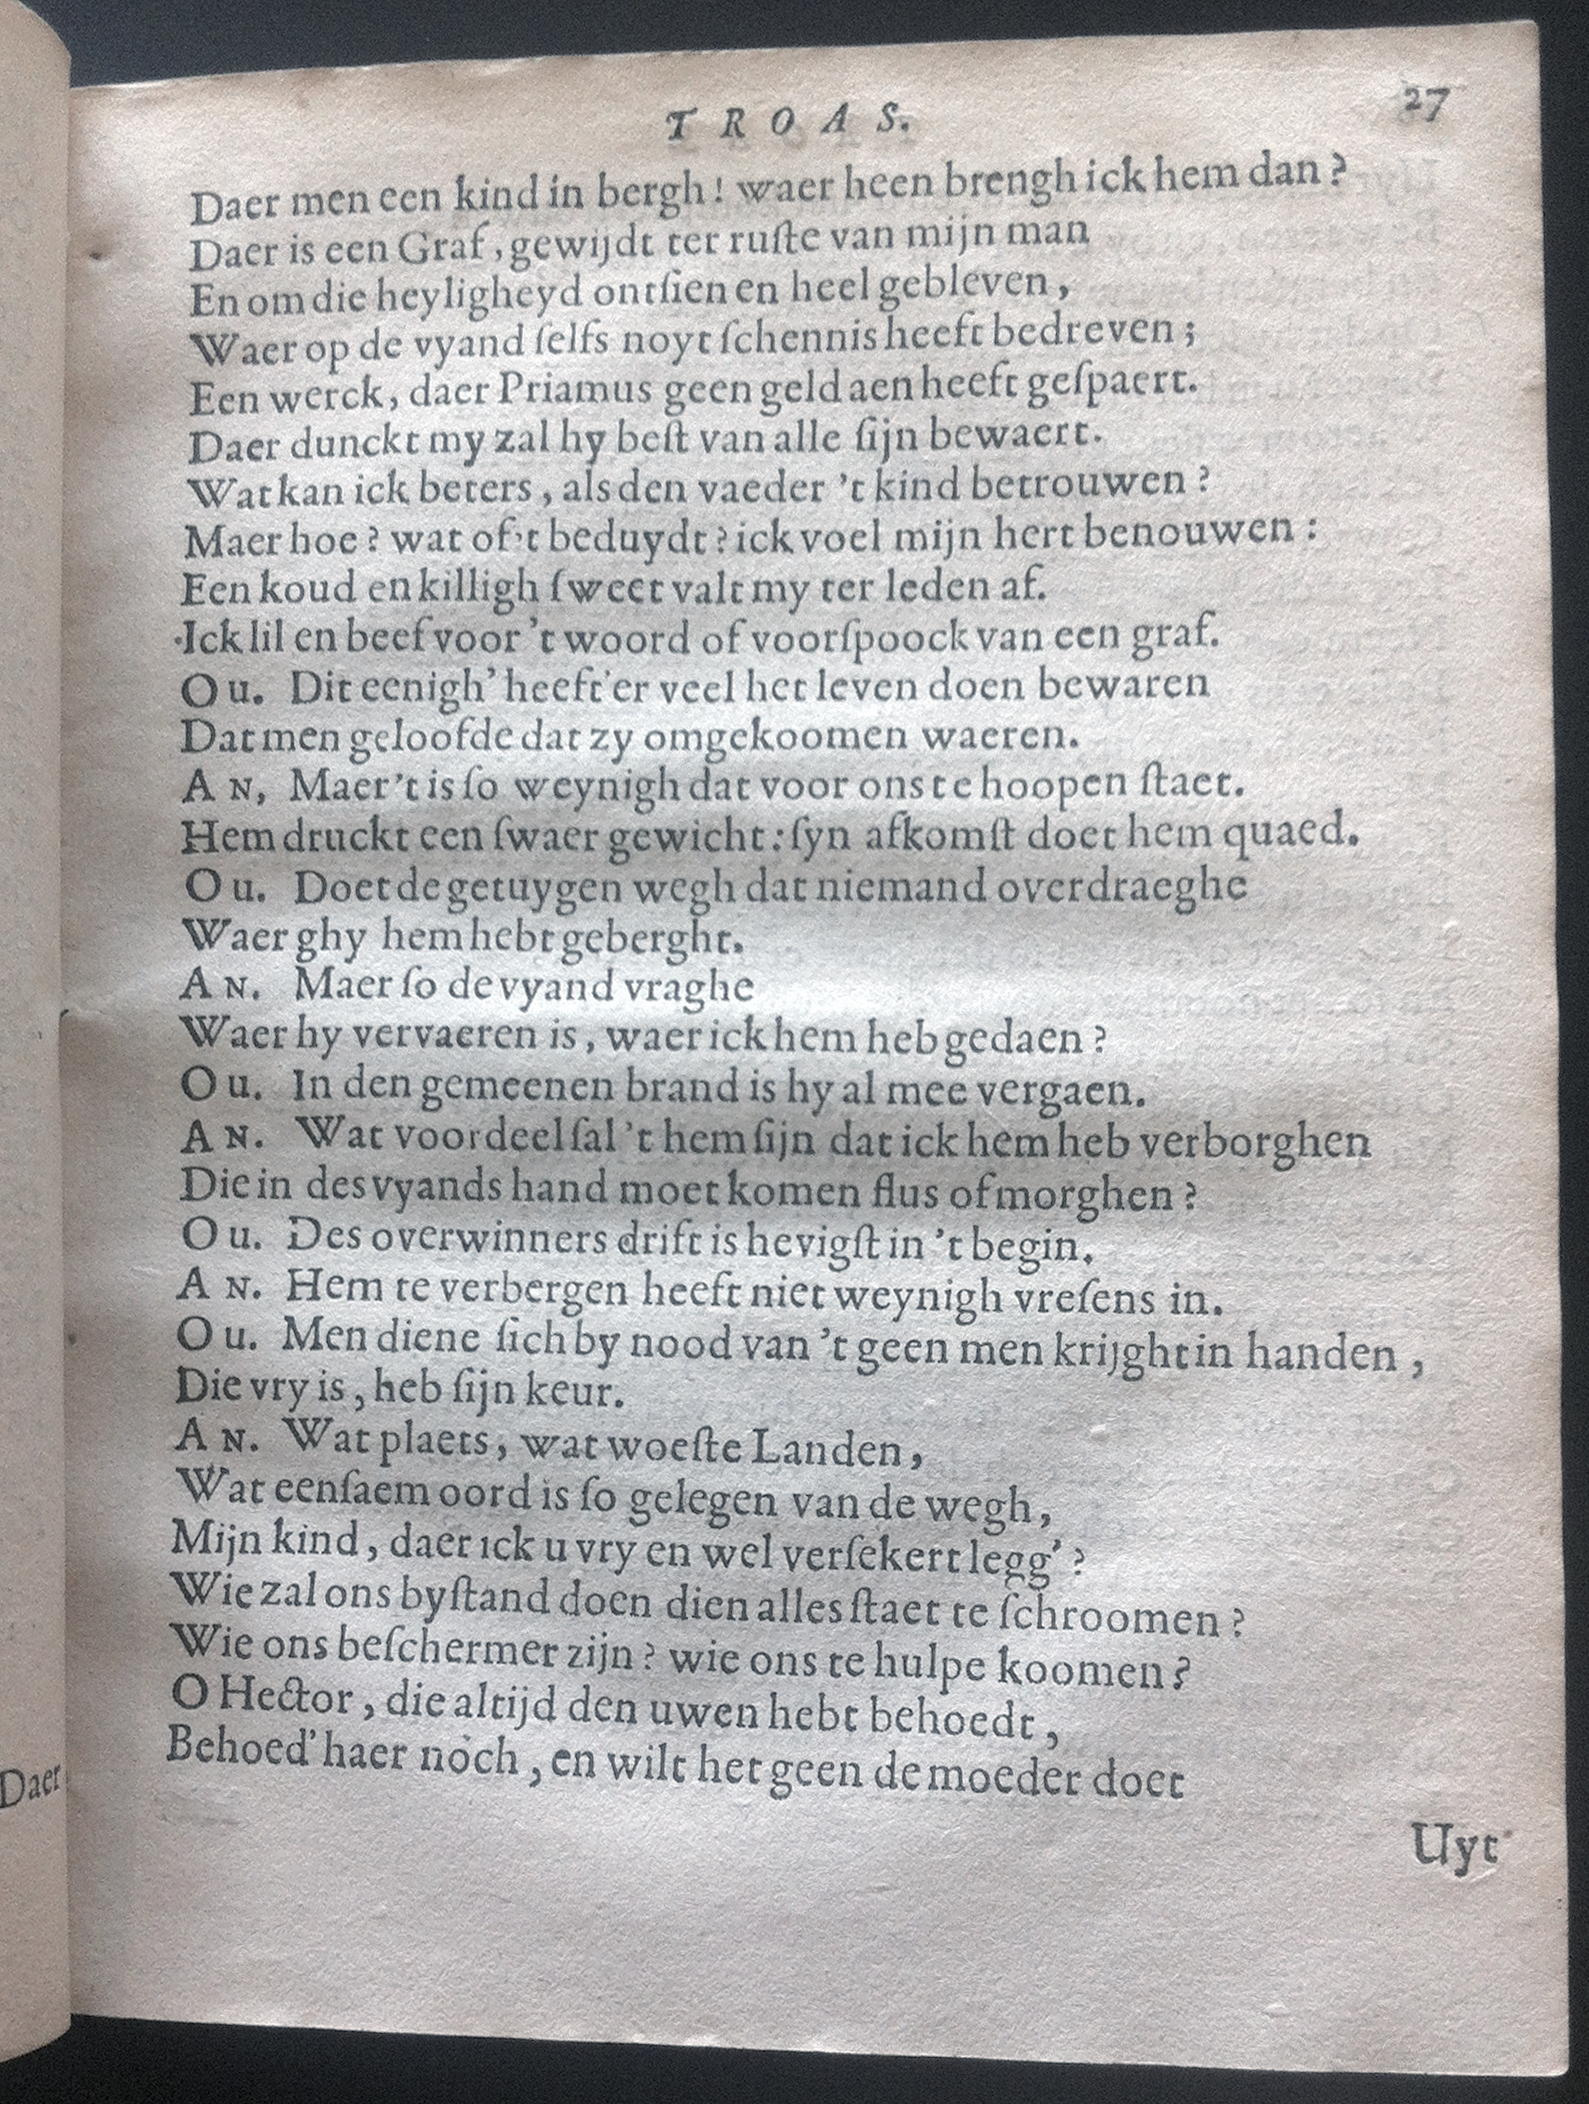 TROAS. 27
Daer men een kind in bergh! waer heen brengh ick hem dan?
Daer is een Graf, gewijdt ter ruſte van mijn man
En om die heyligheyd ontſien en heel gebleven,
Waer op de vyand ſelfs noyt ſchennis heeft bedreven;
Een werck, daer Priamus geen geld aen heeft geſpaert.
Daer dunckt my zal hy beſt van alle ſijn bewaert.
Wat kan ick beters, als den vaeder 't kind betrouwen?
Maer hoe? wat of't beduydt? ick voel mijn hert benouwen:
Een koud en killigh ſweet valt my ter leden af.
Ick lil en beef voor 't woord of voorſpoock van een graf.
Ou. Dit eenigh' heeft'er veel het leven doen bewaren
Dat men geloofde dat zy omgekoomen waeren.
AN, Maer't is ſo weynigh dat voor ons te hoopen ſtaet.
Hem druckt een ſwaer gewicht: ſyn afkomſt doet hem quaed.
Ou. Doet de getuygen wegh dat niemand overdraeghe
Waer ghy hem hebt geberght.
AN. Maer ſo de vyand vraghe
Waer hy vervaeren is, waer ick hem heb gedaen?
Ou. In den gemeenen brand is hy al mee vergaen.
AN. Wat voordeel ſal 't hem ſijn dat ick hem heb verborghen
Die in des vyands hand moet komen flus of morghen?
Ou. Des overwinners drift is hevigſt in 't begin.
AN. Hem te verbergen heeft niet weynigh vreſens in.
Ou. Men diene ſich by nood van 't geen men krijght in handen,
Die vry is, heb ſijn keur.
AN. Wat plaets, wat woeſte Landen,
Wat eenſaem oord is ſo gelegen van de wegh,
Mijn kind, daer ick u vry en wel verſekert legg'?
Wie zal ons byſtand doen dien alles ſtaet te ſchroomen?
Wie ons beſchermer zijn? wie ons te hulpe koomen?
O Hector, die altijd den uwen hebt behoedt,
Behoed' haer noch, en wilt het geen de moeder doet
Uyt
Daer